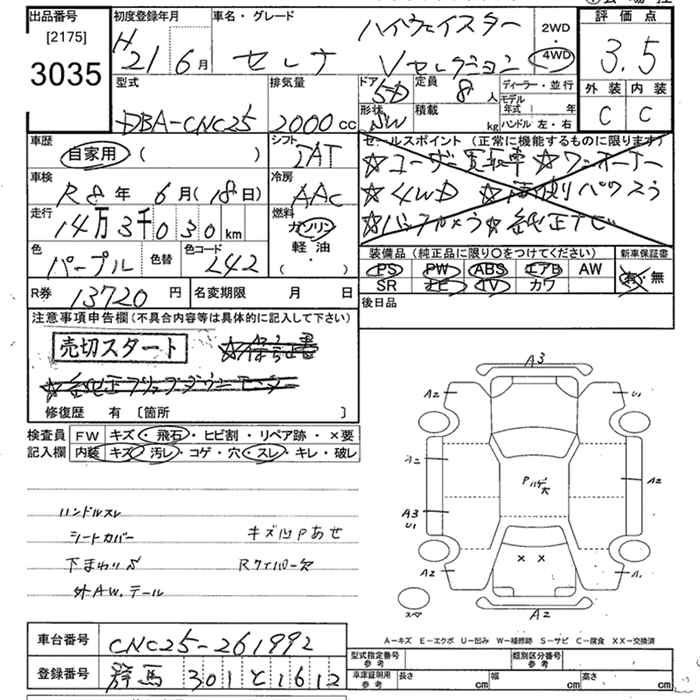 出品番号
[2175]
3035
初度登録年月
H21 6月
車名・グレード
ハイウェイスター
セレナ Vセレクション
2WD
・
4WD
評価点
3.5
外装 内装
C C
型式
DBA-CNC25
排気量
2000cc
ドア
5D
形状
SW
定員
8人
積載
kg
ディーラー・並行
モデル年式 年
ハンドル 左・右
車歴
自家用 ( )
シフト
IAT
車検
R8年 6月(18日)
冷房
AAC
走行
14万3千030km
燃料
ガソリン
軽油
( ・ )
色
パープル
色替
色コード
L42
セールスポイント (正常に機能するものに限ります)
☆ユーザー買取車 ☆ワンオーナー
☆4WD ☆両側パワスラ
☆バックカメラ ☆純正ナビ
装備品 (純正品に限り○をつけてください)
PS PW ABS エアB AW
SR ナビ TV カワ
新車保証書
有・無
R券 13720円
名変期限 月 日
後日品
注意事項申告欄 (不具合内容等は具体的に記入して下さい)
売切スタート ☆保証書
修復歴 有 [箇所 ]
検査員記入欄
FW キズ・飛石・ヒビ割・リペア跡・×要
内装 キズ・汚レ・コゲ・穴・スレ・キレ・破レ
ハンドルスレ
シートカバー キズ凹Pあせ
下まわりS Rワイパー欠
外AW.テール
A3
A2 U1
A2
PハゲX大
A3
U1
A2 A1
× ×
スペア
A2
A-キズ E-エクボ U-凹み W-補修跡 S-サビ C-腐食 XX-交換済
車台番号 CNC25-261992
登録番号 群馬 301 と 1612
型式指定番号
参考
類別区分番号
参考
車庫証明用
参考
長さ cm 幅 cm 高さ cm